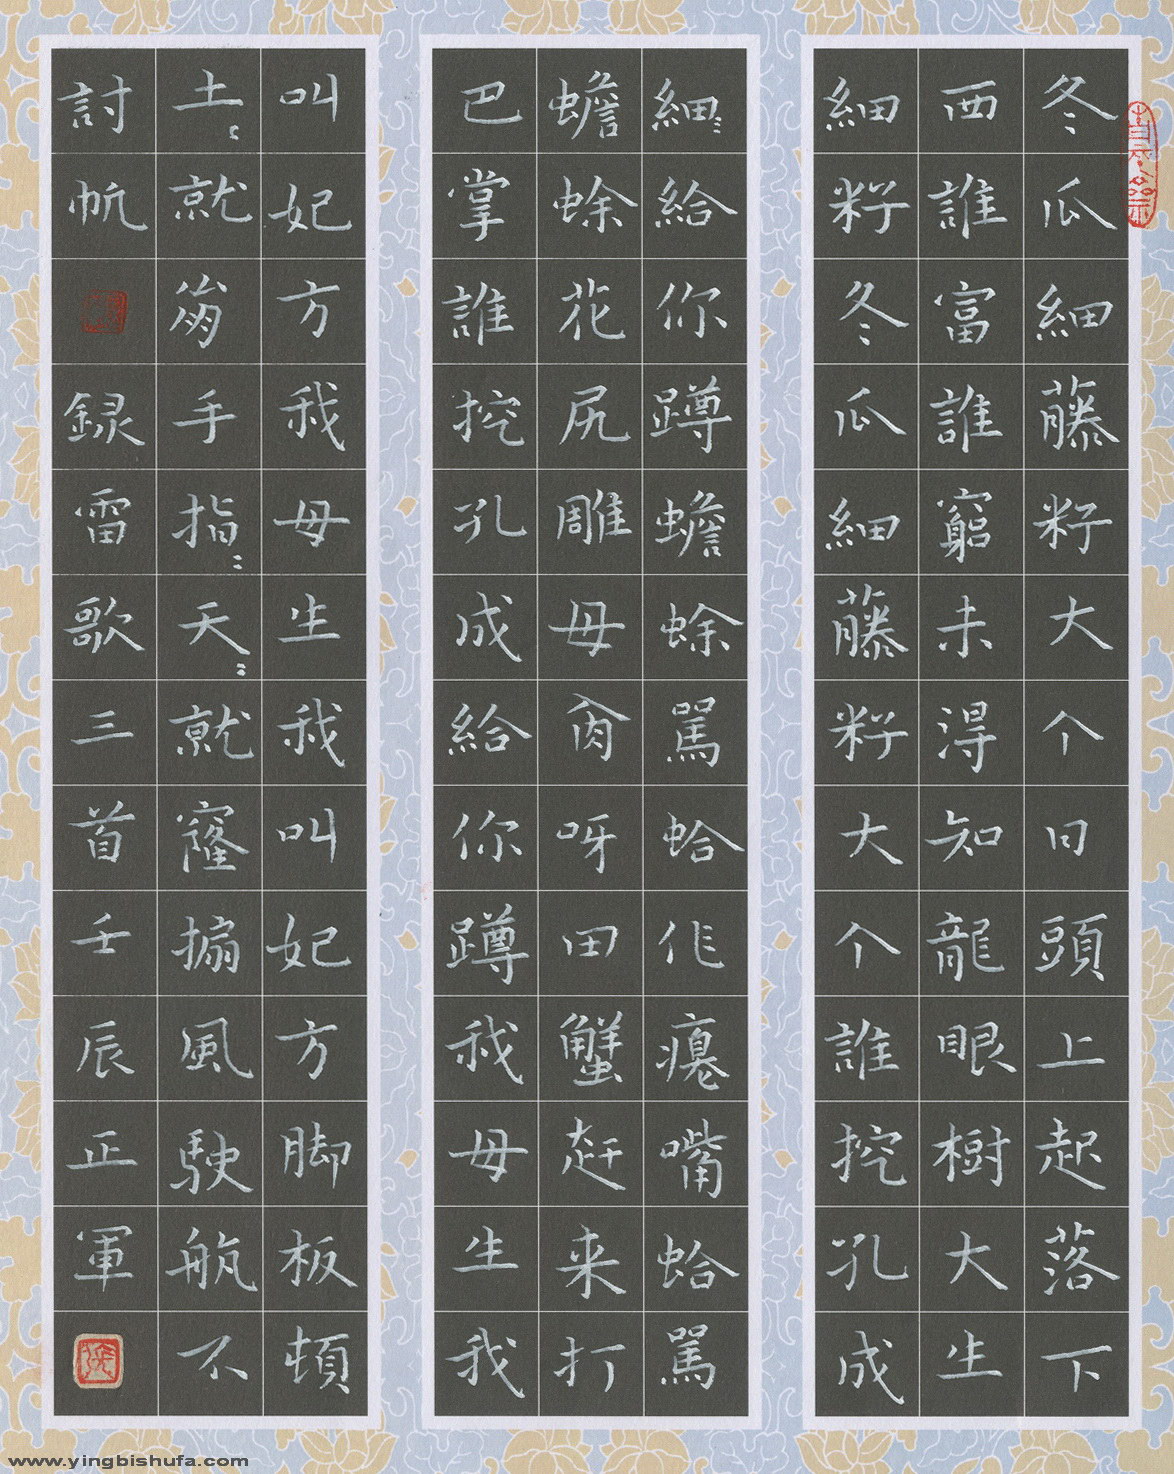 冬瓜細藤籽大个日頭上起落下
西誰富誰窮未淂知龍眼樹大生
細籽冬瓜細藤籽大个誰挖孔成
細〻給你蹲蟾蜍駡蛤作嘴蛤駡
蟾蜍花尻雕母肏呀田蟹赶来打
巴掌誰挖孔成給你蹲我母生我
叫妃方我母生我叫妃方脚板頓
土〻就崩手指〻天〻就窿搧風駛航不
討帆
録雷歌三首壬辰正軍
www.yingbishufa.com